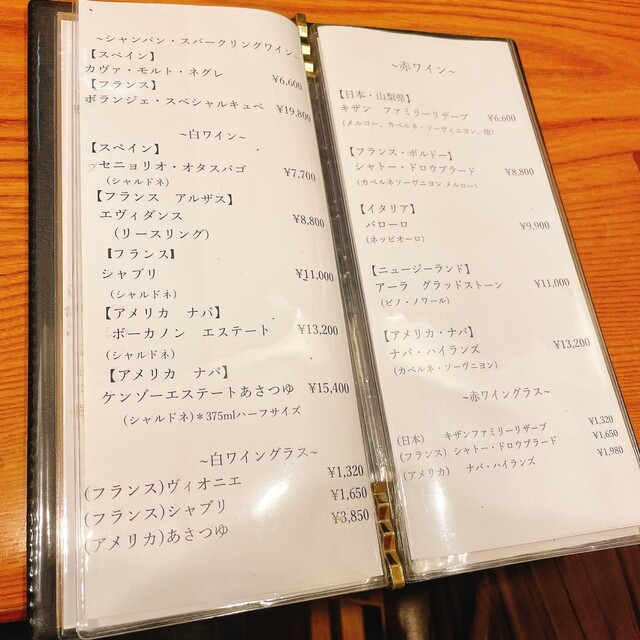 ~シャンパン・スパークリングワイン~
【スペイン】
カヴァ・モルト・ネグレ ¥6,600
【フランス】
ボランジェ・スペシャルキュベ ¥19,800
~白ワイン~
【スペイン】
セニョリオ・オタスバゴ ¥7,700
(シャルドネ)
【フランス アルザス】
エヴィダンス ¥8,800
(リースリング)
【フランス】
シャブリ ¥11,000
(シャルドネ)
【アメリカ ナパ】
ボーカノン エステート ¥13,200
(シャルドネ)
【アメリカ ナパ】
ケンゾーエステートあさつゆ ¥15,400
(シャルドネ)*375mlハーフサイズ
~白ワイングラス~
(フランス)ヴィオニエ ¥1,320
(フランス)シャブリ ¥1,650
(アメリカ)あさつゆ ¥3,850
~赤ワイン~
【日本・山梨県】
キザン ファミリーリザーブ ¥6,600
(メルロー、カベルネ・ソーヴィニヨン、他)
【フランス・ボルドー】
シャトー・ドロウブラード ¥8,800
(カベルネソーヴニヨン,メルロー)
【イタリア】
バローロ ¥9,900
(ネッビオーロ)
【ニュージーランド】
アーラ グラッドストーン ¥11,000
(ピノ・ノワール)
【アメリカ・ナパ】
ナパ・ハイランズ ¥13,200
(カベルネ・ソーヴニヨン)
~赤ワイングラス~
(日本) キザンファミリーリザーブ ¥1,320
(フランス) シャトー・ドロウブラード ¥1,650
(アメリカ) ナパ・ハイランズ ¥1,980